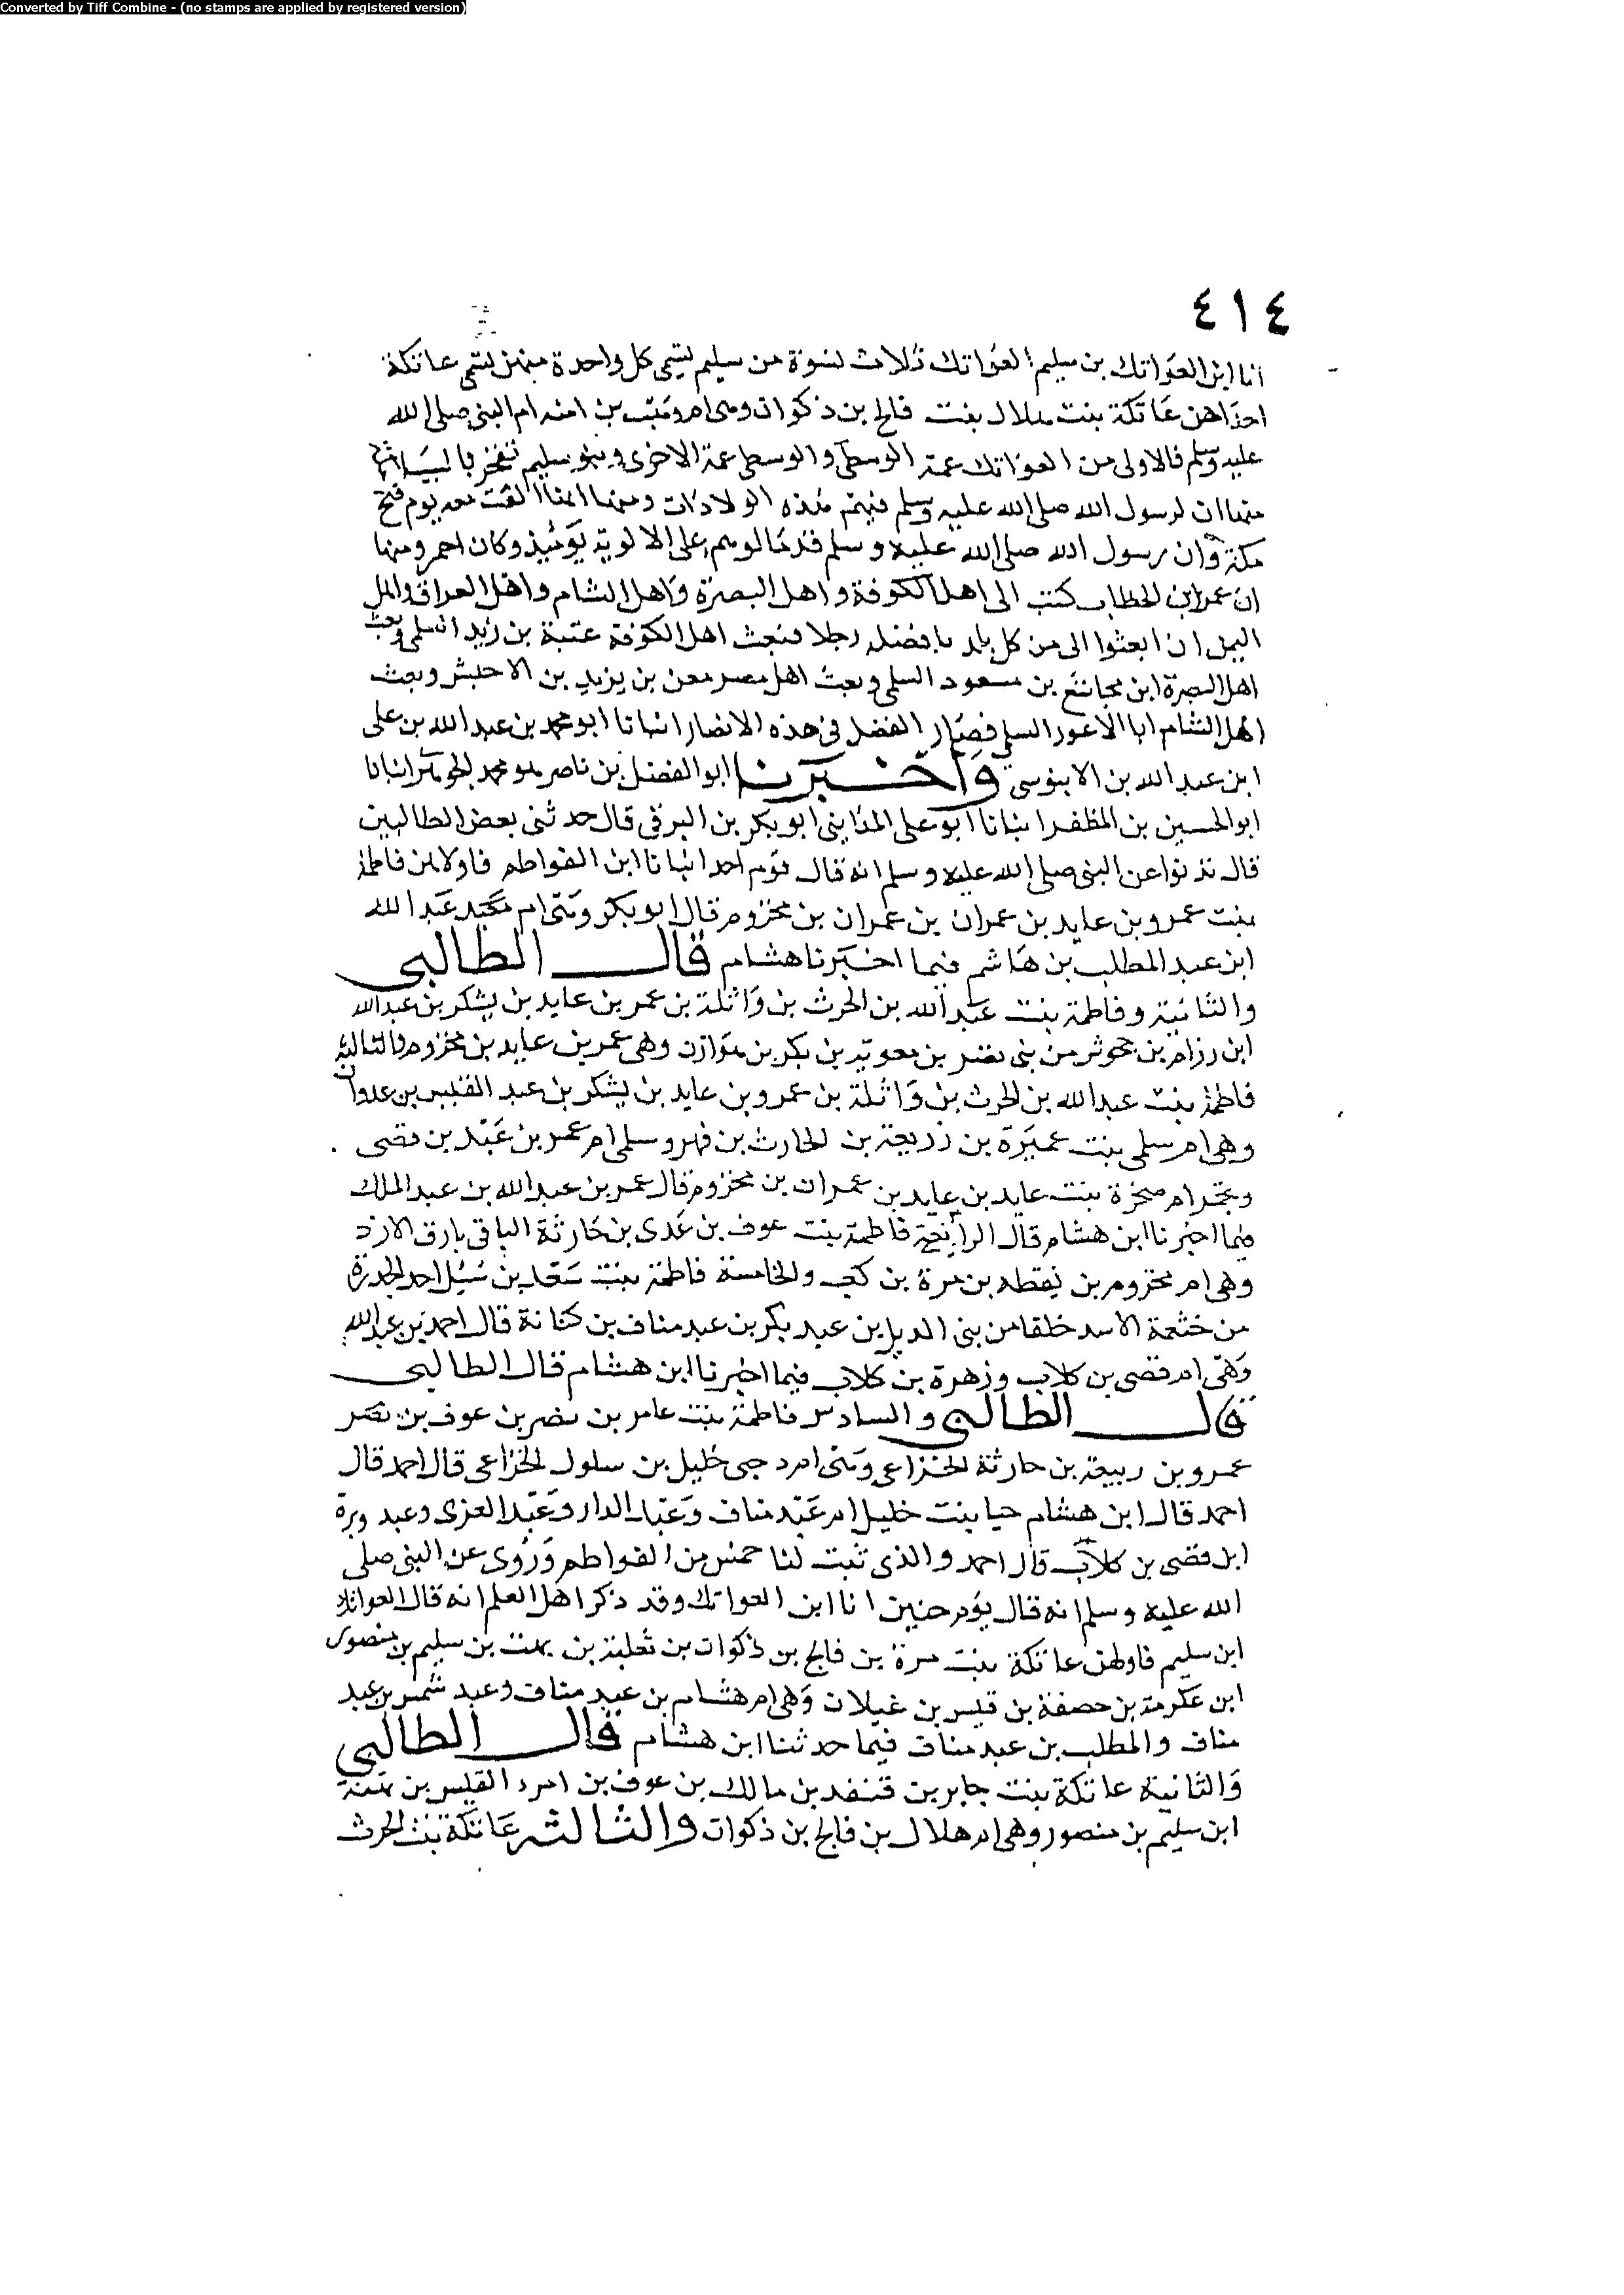 Converted by Tiff Combine - (no stamps are applied by registered version)
٤١٤
انا ابن العواتك بن سليم العواتك ثلاث نسوة من سليم تسمى كل واحدة منهن تسمى عاتكة
احداهن عاتكة بنت هلال بنت فالح بن ذكوان وهى ام وهب بن امنه ام النبى صلى الله
عليه وسلم فالاولى من العواتك عمة الوسطى والوسطى عمة الاخرى وبنو سليم تفخر باشيا
منها ان لرسول الله صلى الله عليه وسلم فيهم هذه الولادات ومنها انها الفت معه يوم فتح
مكة وان رسول الله صلى الله عليه وسلم قدم لوهم على الالوية يومئيذ وكان احمر ومنها
ان عمر ابن الخطاب كتب الى اهل الكوفة واهل البصرة واهل الشام واهل العراق واهل
اليمن ان ابعثوا الى من كل بلد بافضله رجلا فبعث اهل الكوفة عتبة بن زيد السلمى وبعث
اهل البصرة ابن مجاشع بن مسعود السلمى وبعث اهل مصر معن بن يزيد بن الاحبش وبعث
اهل الشام ابا الاعور السلمى فصار الفضل فى هذه الانصار انبانا ابو محمد بن عبد الله بن على
ابن عبد الله بن الابنوسى واخبرنا ابو الفضل بن ناصر محمد الجوهرى انبانا
ابو الحسين بن المظفر انبانا ابو على المداينى ابو بكر بن البرقى قال حدثنى بعض الطالبين
قال عن النبى صلى الله عليه وسلم انه قال يوم احد انبانا ابن الفواطم فاولاهن فاطمة
بنت عمرو بن عايد بن عمران بن عمران بن مخزوم قال ابو بكر وهى ام عبد الله
ابن عبد المطلب بن هاشم فيما اخبرنا هشام قال الطالبى
والثانية وفاطمة بنت عبد الله بن الحرث بن واثلة بن عمر بن عايد بن يشكر بن عبد الله
ابن رزام بن جحوش من بنى نصر بن معوية بن بكر بن هوازن وهى عمر بن عايد بن مخزوم والثالثة
فاطمة بنت عبد الله بن الحرث بن واثلة بن عمرو بن عايد بن يشكر بن عبد القيس بن عدوان
وهى ام سلمى بنت عميرة بن زريعة بن الحارث بن فهر وسلمى ام عمر بن عبد بن قصى
ام صخرة بنت عايد بن عايد بن عمران بن مخزوم قال عمر بن عبد الله بن عبد الملك
فيما اخبرنا ابن هشام قال الرابعة فاطمة بنت عوف بن عدى بن حارثة الباقى بارق الازد
وهى ام مخزوم بن يقظه بن مرة بن كعب والخامسة فاطمة بنت سعد بن سيل احد الجدرة
من خثعمة الاسد خلفا من بنى الديل بن عبد بكر بن عبد مناف بن كنانة قال احمد بن عبد الله
وهى ام قصى بن كلاب وزهرة بن كلاب فيما اخبرنا ابن هشام قال الطالبى
قال الطالبى والسادس فاطمة بنت عامر بن نصر بن عوف بن نصر
عمرو بن ربيعة بن حارثة الخزاعى وهى ام حبى خليل بن سلول الخزاعى قال احمد قال
احمد قال ابن هشام حيا بنت خليل ام عبد مناف وعبد الدار وعبد العزى وعبد وبرة
ابن قصى بن كلاب قال احمد والذى ثبت لنا خمس من الفواطم وروى عن النبى صلى
الله عليه وسلم انه قال يوم حنين انا ابن العواتك وقد ذكر اهل العلم انه قال العواتك
ابن سليم فاولهن عاتكة بنت مرة بن فالح بن ذكوان بن ثعلبة بن بهت بن سليم بن منصور
ابن عكرمة بن حصفة بن قيس بن غيلان وهى ام هشام بن عبد مناف وعبد شمس بن عبد
مناف والمطلب بن عبد مناف فيما حدثنا ابن هشام قال الطالبى
والثانية عاتكة بنت جابر بن قنفد بن مالك بن عوف بن امرء القيس بن بهثة
ابن سليم بن منصور وهى ام هلال بن فالح بن ذكوان والثالثه عاتكة بنت الحرث